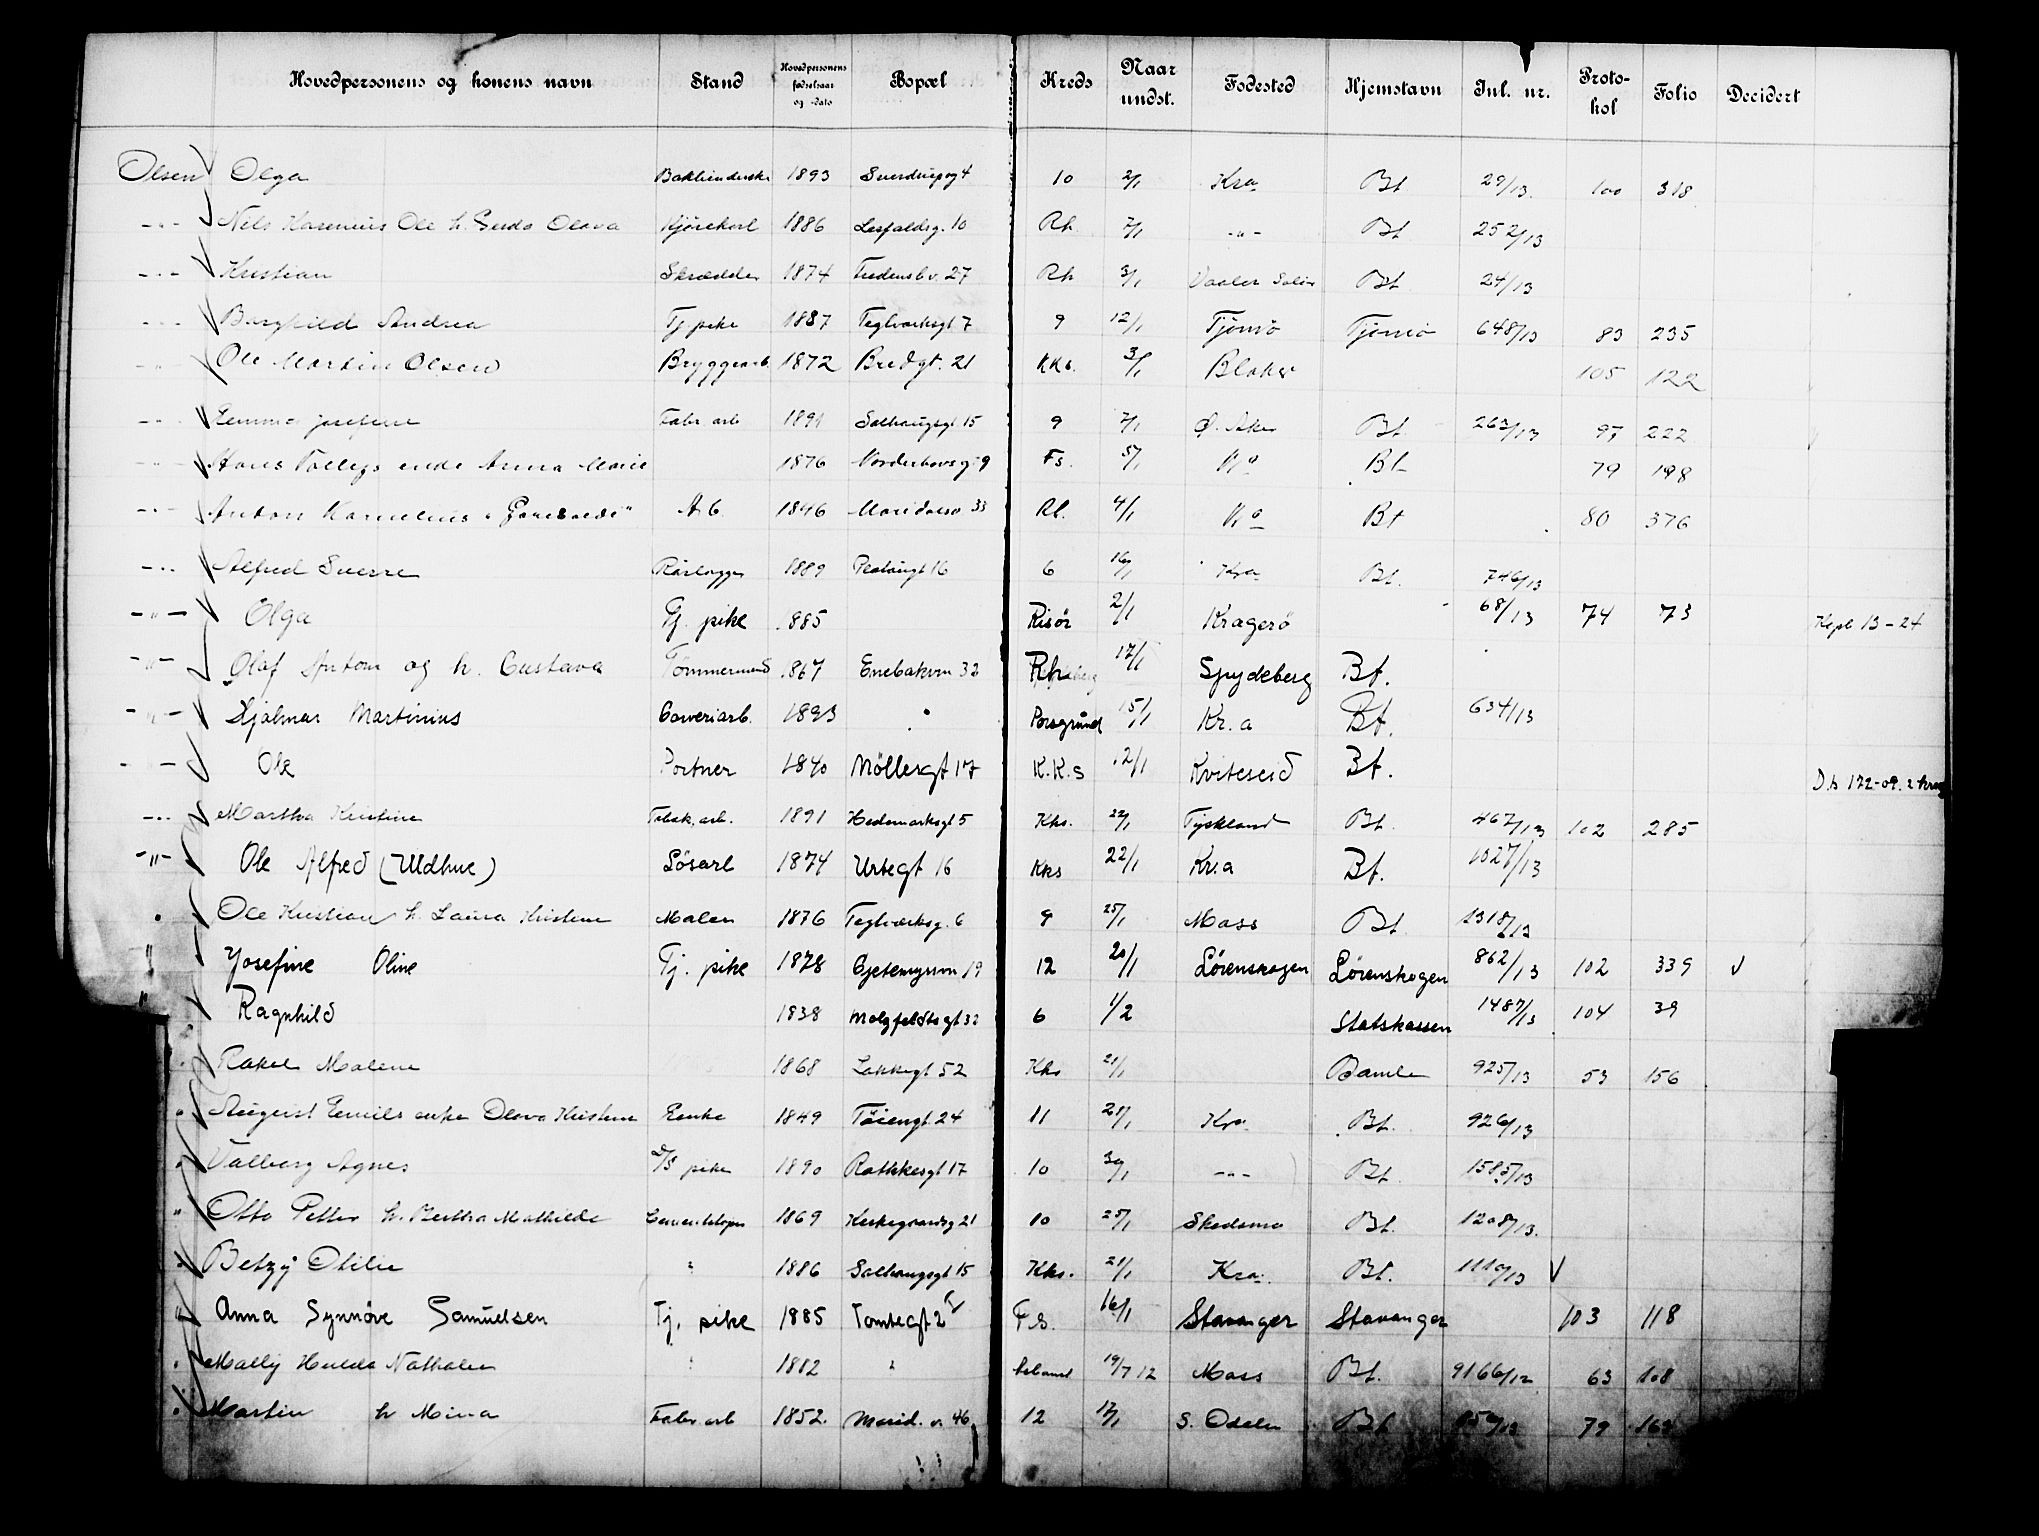 Hovedpersonens og konens navn Stand Hovedpersonens fødselsaar og -dato Bopæl Kreds Naar undst. Fødested Hjemstavn Jnl. nr. Protokol Folio Decidert
Olsen Olga 1893 4 10 2/1 Kra Bt 29/13. 100 318
-"- Nils Ole h. Olava Kjørekarl 1886 10 Rh. 7/1 -"- Bt 252/13
-"- Kristian Skrædder 1874 Fredensb.v. 27 Rh 3/1 Vaaler Solør Bt. 24/13
-"- Borghild Andrea Tj. pike 1887 Teglverksgt 7 9 12/1 Tjømø Tjømø 648/13 83 235
" Ole Martin Olsen Bryggearb. 1872 Bredgt. 21 KKs. 3/1 Blaker 105 122
-"- Emma Josefine Fabr. arb 1891 Solhaugsgt 15 9 7/1 Ø. Aker Bt. 263/13 97 222
-"- Hans enke Anna Marie 1876 Norderhovsg. 9 Fs. 5/1 Kra Bt 79 198
-"- Anton Kornelius 1846 Maridalsv 33 Rh. 4/1 Kra Bt 80 376
-"- Alfred Sverre Rørlægger 1889 16 6 16/1 Kra Bt. 746/13
-"- Olga Tj. pike 1885 Risør 2/1 Kragerø 68/13 74 73 Kopb. 13-24
-"- Olaf Anton og h. Gustava Tømmermand 1867 Enebakvn 32 Rh 17/1 Spydeberg Bt.
-"- Hjalmar Martinius Garveriarb. 1893 " Porsgrund 15/1 Kr.a Bt. 634/13
-"- Ole Portner 1840 Møllergt 17 K.K.s 12/1 Kviteseid Bt. D.b 172-09.
-"- Martha Kristine Tobak. arb. 1891 Hedemarksgt 5 Kks. 22/1 Tyskland Bt. 467/13 102 285
-"- Ole Alfred (Uldhue) Løsarb 1874 Urtegt 16 KKs 22/1 Kr.a Bt. 1027/13
" Ole Kristian h. Laura Kristine Maler 1876 Teglverksg. 6 9 25/1 Moss Bt. 1318/13
" Josefine Oline Tj. pike 1878 Gjetemyrsvn 19 12 20/1 Lørenskogen Lørenskogen 862/13 102 339 √
" Ragnhild 1838 Molzfeldtsgt 32 6 1/2 Statskassen 1487/13 104 39
" Rakel Malene 1868 Lakkegt 52 Kks 21/1 Bamle 925/13 53 156
" August Emils enke Olava Kristine Enke 1849 Tøiengt. 24 11 21/1 Kra Bt. 926/13
" Valborg Agnes pike 1890 Rathkesgt 17 10 30/1 -"- Bt. 1585/13
" Otto Petter h. Bertha Mathilde 1869 Kirkegaardsg 21 10 25/1 Skedsmo Bt. 1208/13.
" Betzy Otilie " 1886 Solhaugsgt 15 Kks. 21/1 Kra. Bt. 1110/13 √
" Anna Synnøve Samuelsen Tj. pike 1885 Tomtegt 2 F.s. 16/1 Stavanger Stavanger 103 118
" Mally Hulda Nathalie " 1882 " 19/7 12 Moss Bt. 9166/12 63 108
" Martin h Mina Fabr. arb 1852. Marid. v. 46 12 17/1 S. Odalen Bt 79